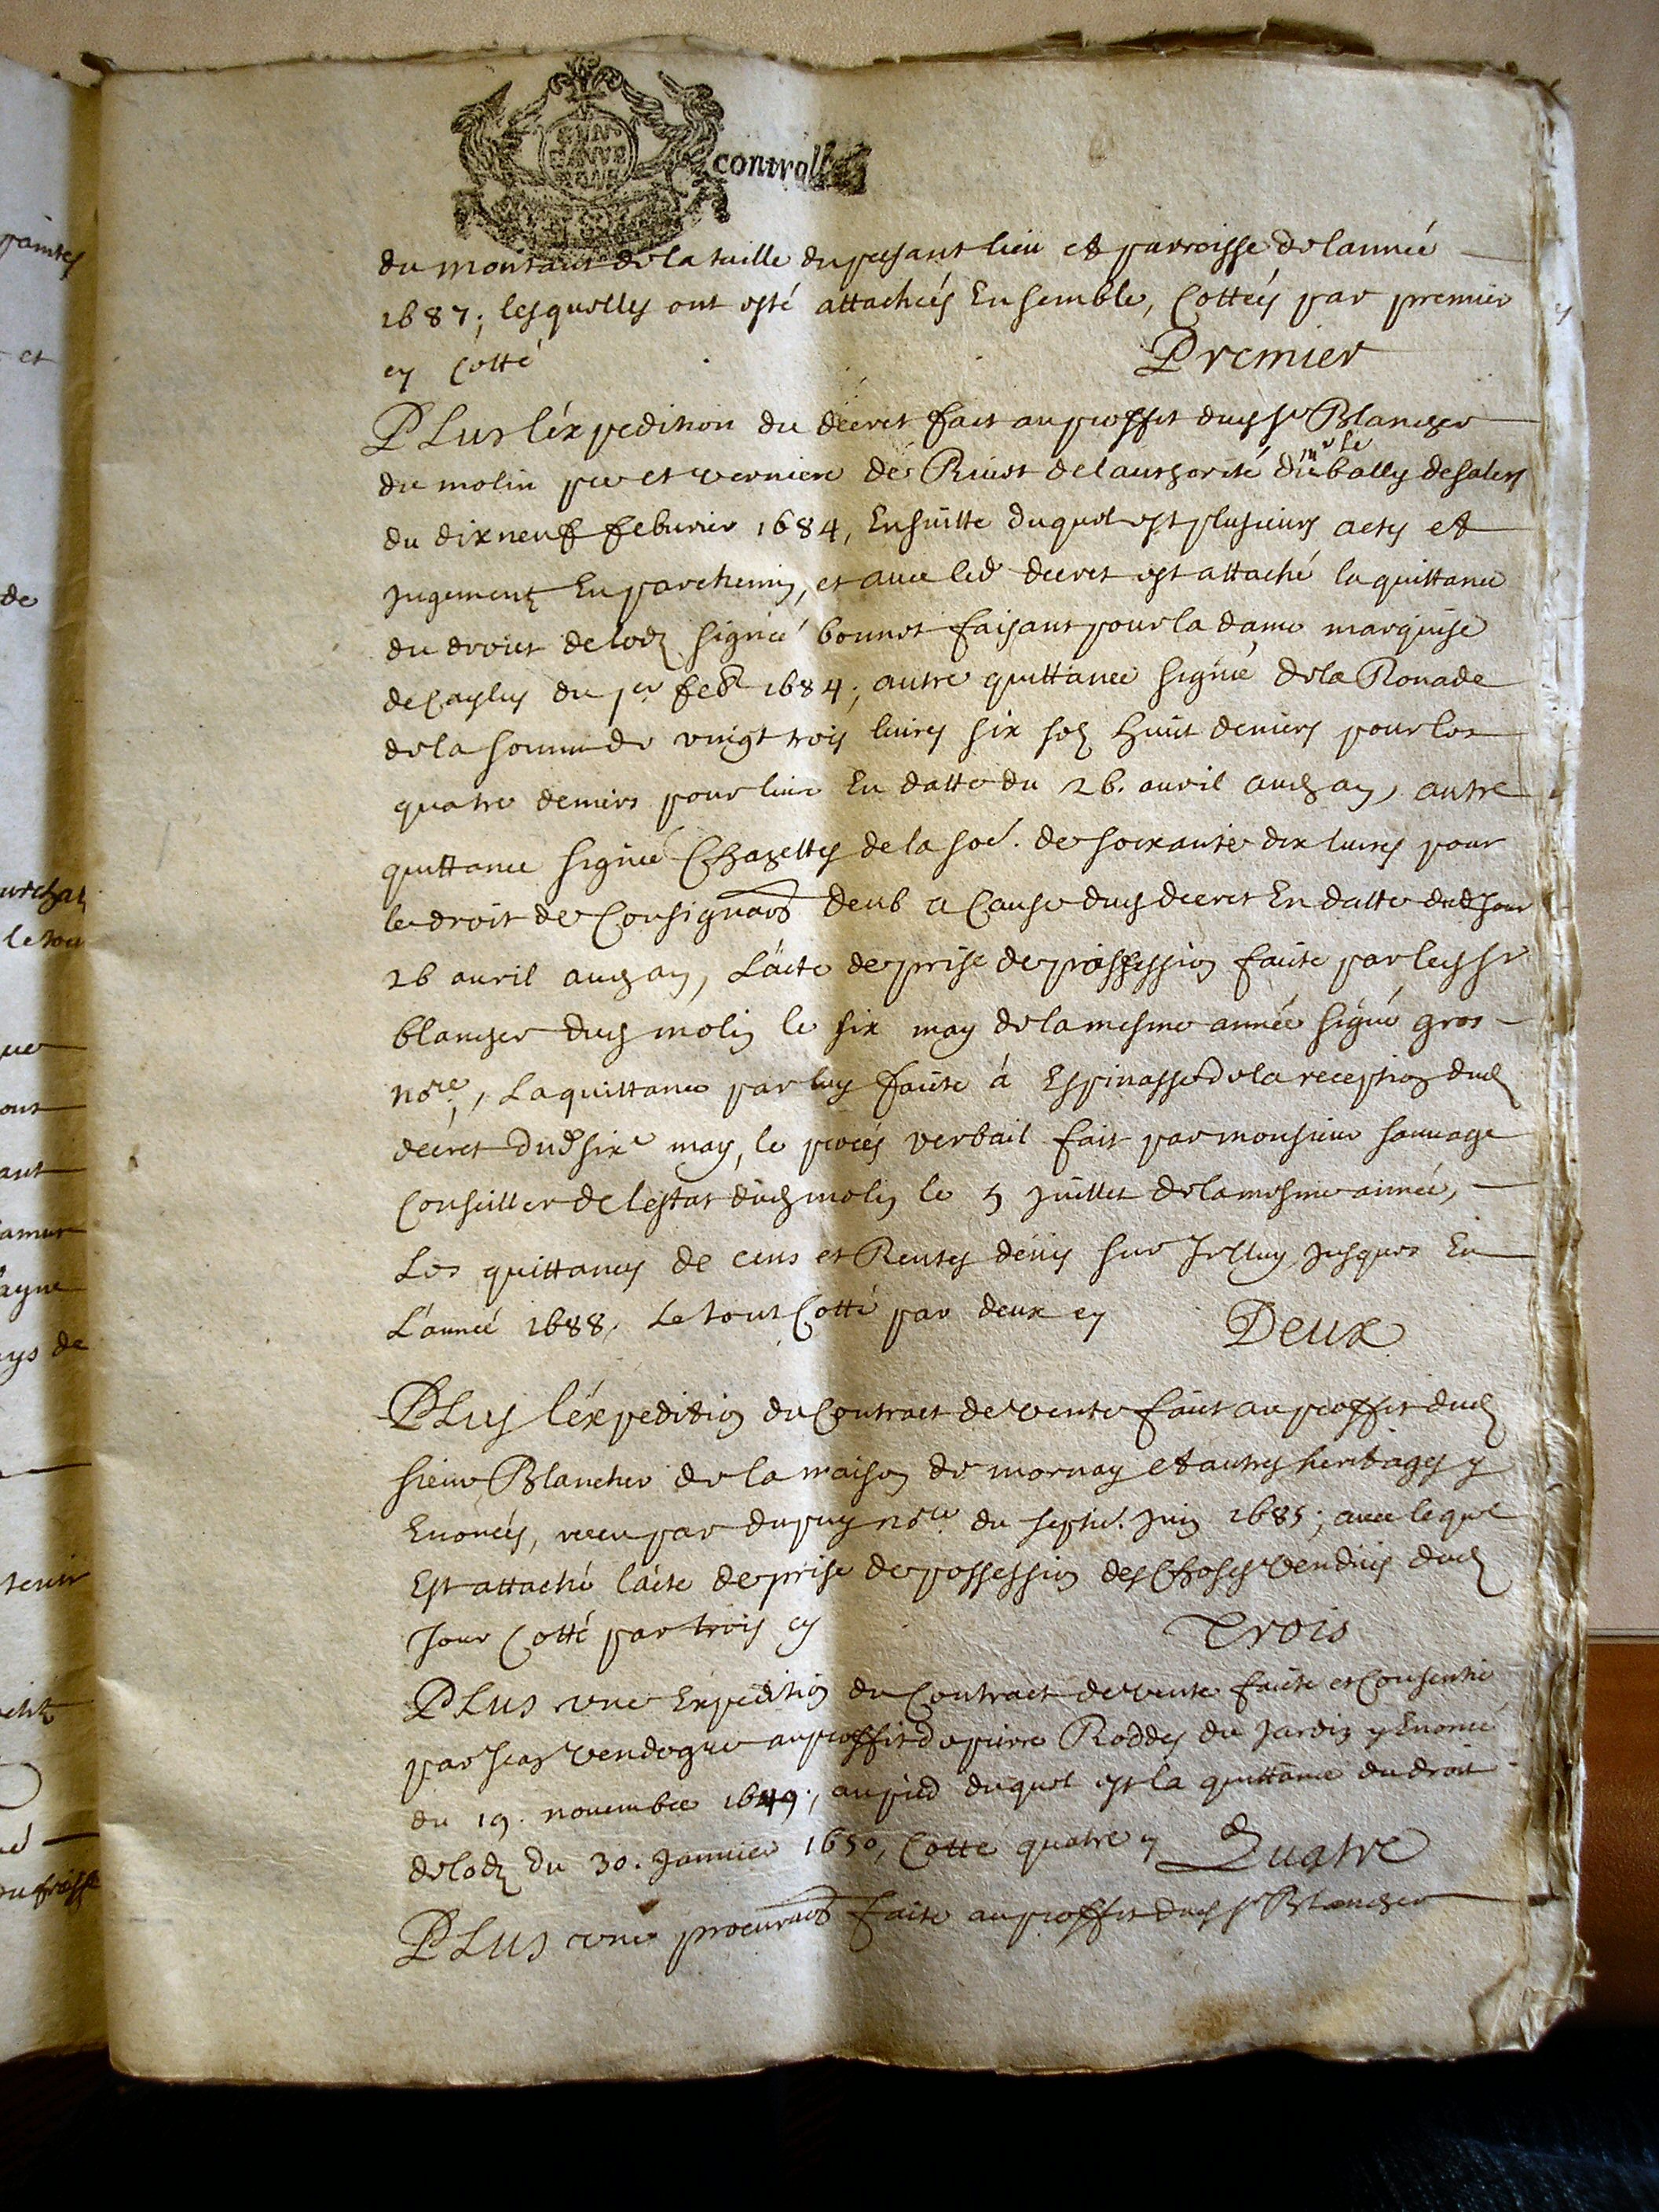 controllé
du montant de la taille du presant lieu et parroisse de lannéé
1687; lesquelles ont esté attachéés Ensemble, Cottéés par premier
cy Cotté Premier
PLus léxpedition du décret fait au proffit dud sr Blancher
du molin pré et verniere dé Riüst de lauthorité du bally de salers
du dixneuf feburier 1684, Ensuitte duquel est plusieurs actes et
jugementz En parchemin, et avec led decret est attaché la quittance
du droict de lodz signéé bonnet faisant pour la dame marquise
de Caylus du 1er feb 1684; autre quittance signéé de la Ronade
de la somme de vingt trois liures six solz huit deniers pour les
quatre deniers pour liure En datte du 26. auril aud an, autre
quittance signéé Chazettes de la soé. de soixante dix liures pour
le droit de Consignaôn deub a Cause dud decret En datte dud jour
26 auril aud an, L'acte de prise de possession faite par led sr
blancher dud molin le six may de la mesme année signé gros
nore, La quittance par luy faite á Espinasse de la reception dud
décret dud sixe may, le procés verbail fait par monsieur sauuage
Conseiller de lestat dud molin le 5 juillet de la mesme année,
Les quittances de cens et Rentes deües sur Icelluy jusques En
L'année 1688, Le tout Cotté par deux cy Deux
PLus léxpedition du Contract de vente fait au proffit dud
sieur Blancher de la maison de mornay et autres heritages y
Enoncés, receu par dupuy nore du septie. juin 1685; avec lequel
Est attaché l'acte de prise de possession des Choses vendües dud
Jour Cotté par trois cy Trois
PLus vne Expedition du Contract de vente faite et Consentie
par Jean vendogre au proffit de pierre Roddes du jardin y Enoncé
du 19. novembre 1649; au pied duquel est la quittance du droit
de lodz du 30. janvier 1650, Cotté quatre cy Quatre
PLus vne procuraôn faite au proffit dud sr Blancher